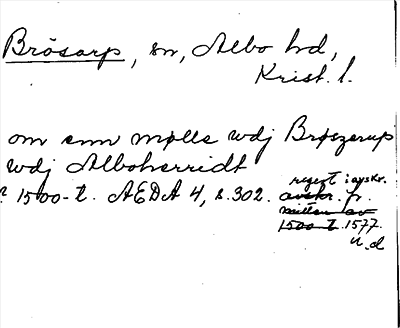 Brösarp, sn, Albo hd,
Krist. l.
om enn mølle wdj Brøszerup
wdj Alboherridt
1500-t. AEDA 4, s. 302.
regest i avskr.
avskr. fr.
mitten av
1500-t. 1577.
u. d